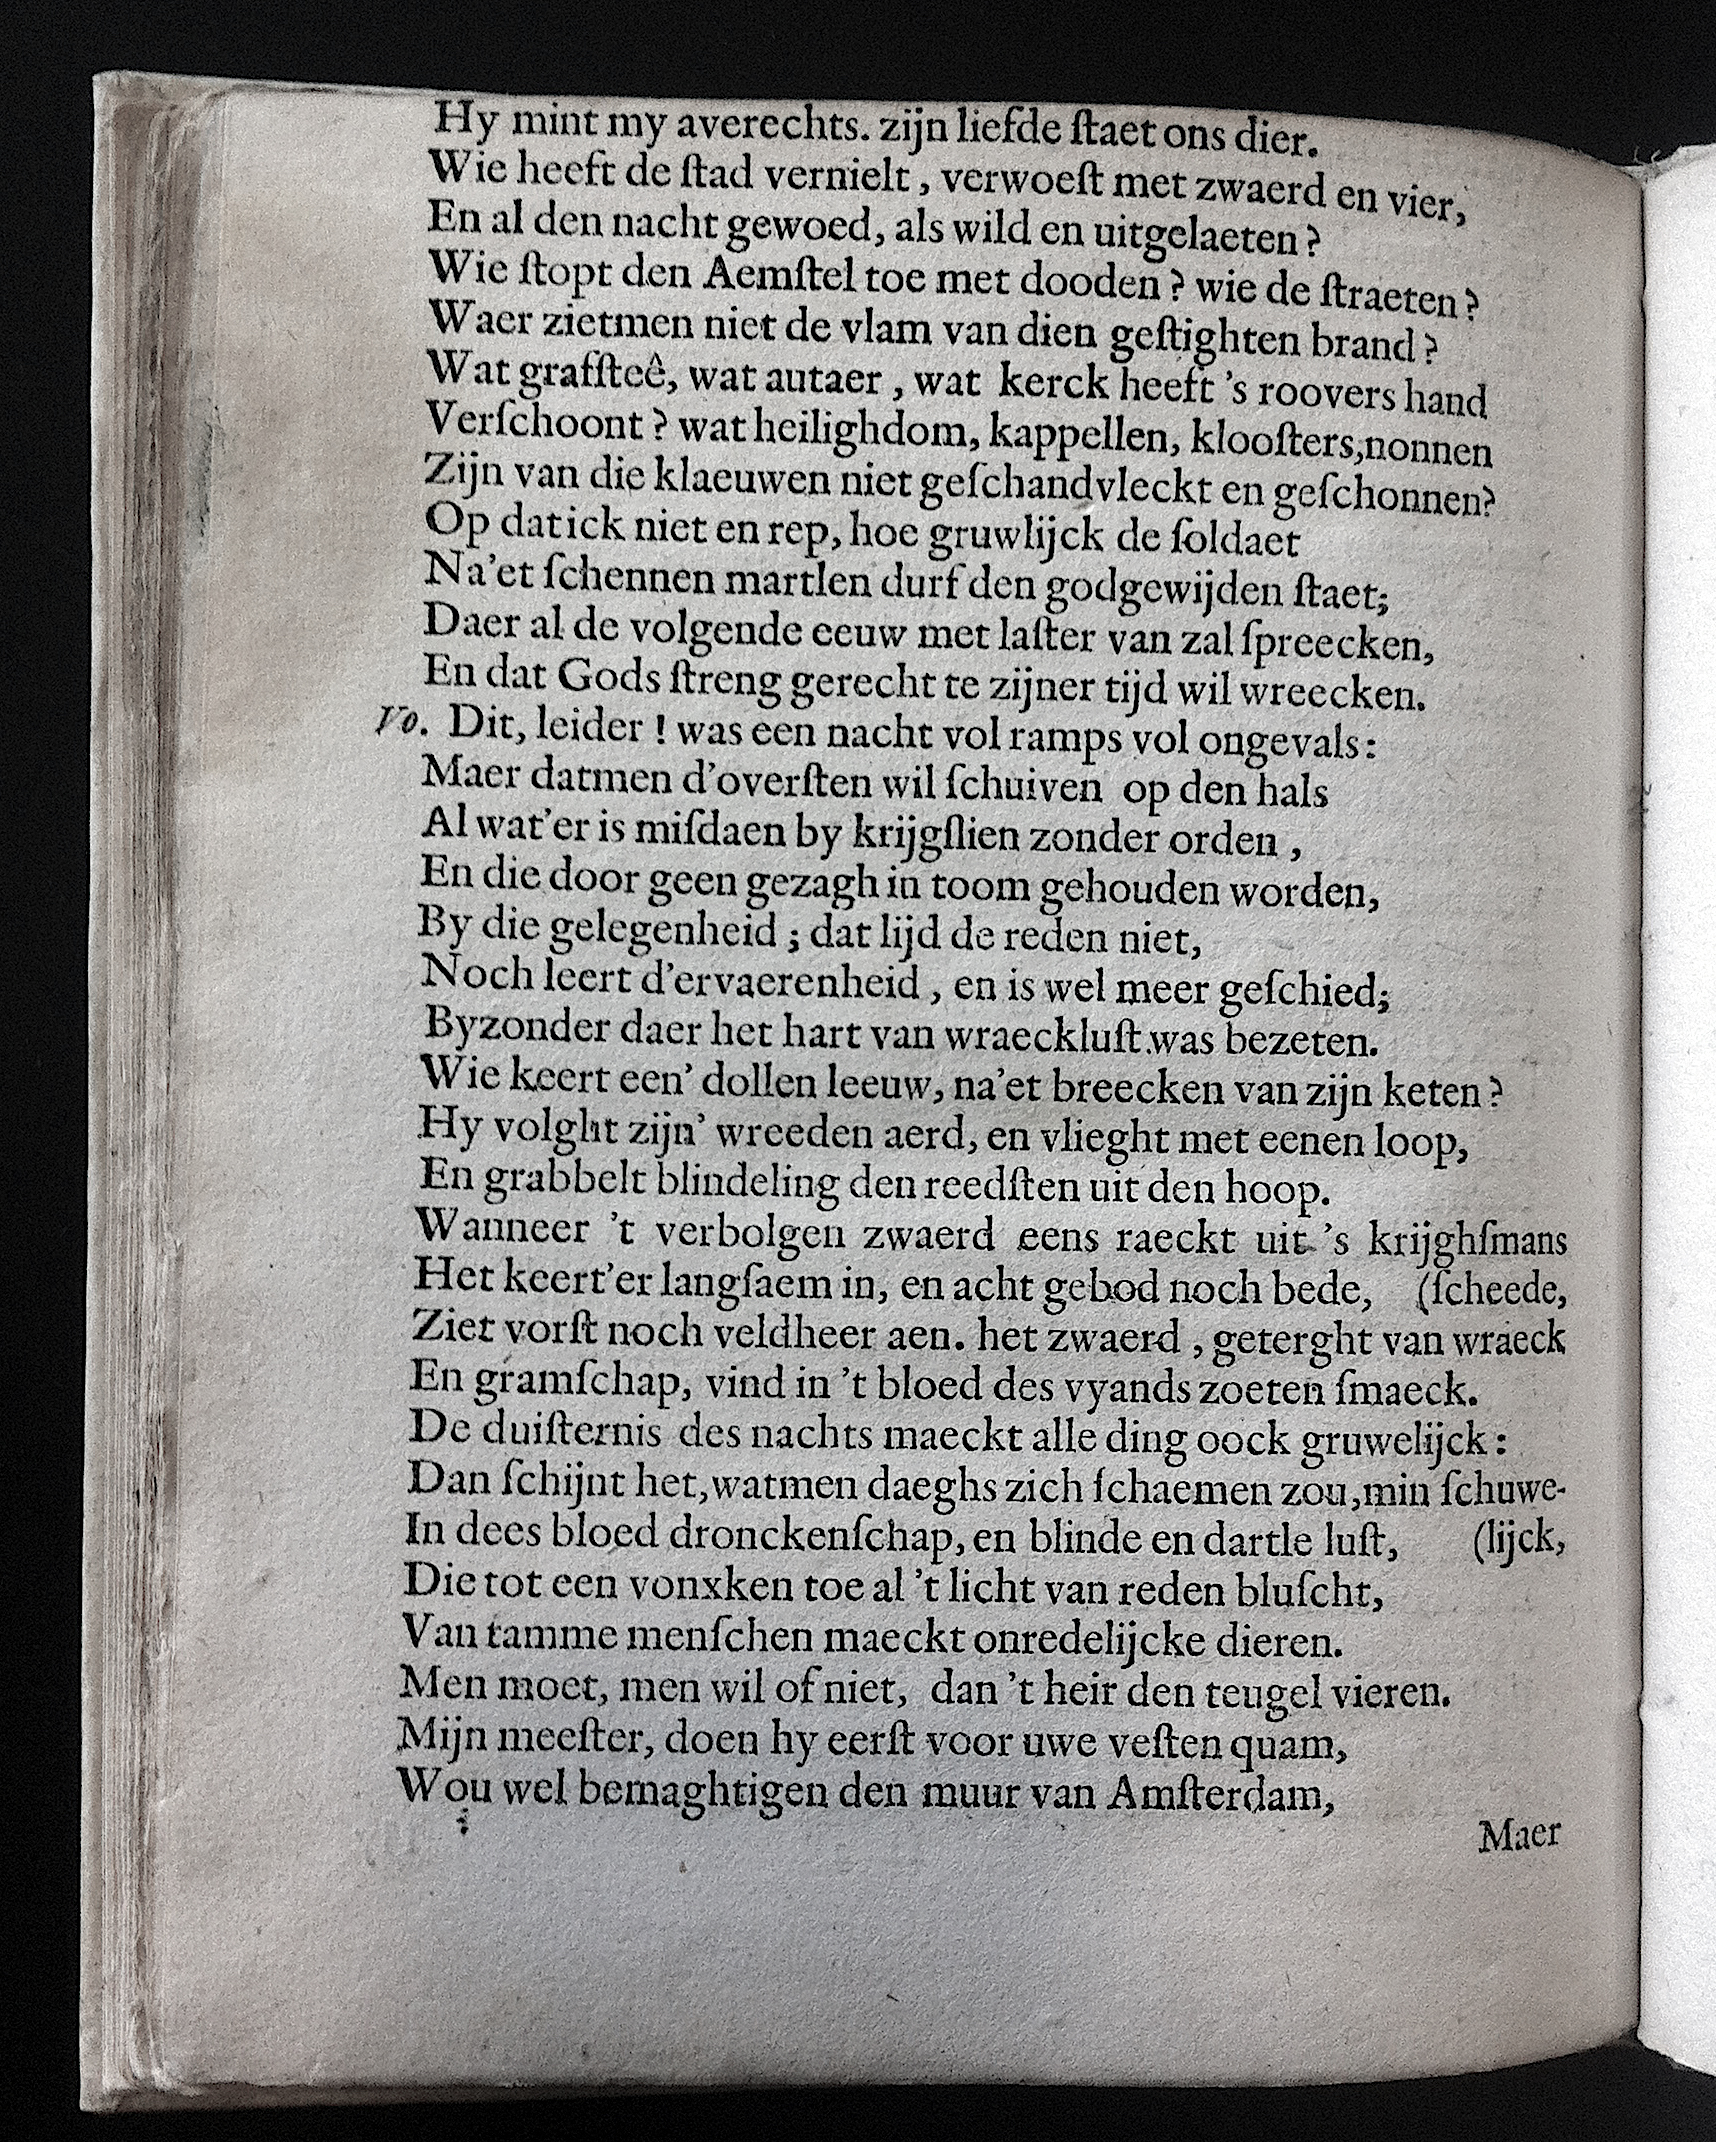 Hy mint my averechts. zijn liefde ſtaet ons dier.
Wie heeft de ſtad vernielt, verwoeſt met zwaerd en vier,
En al den nacht gewoed, als wild en uitgelaeten?
Wie ſtopt den Aemſtel toe met dooden? wie de ſtraeten?
Waer zietmen niet de vlam van dien geſtighten brand?
Wat grafſteê, wat autaer, wat kerck heeft 's roovers hand
Verſchoont? wat heilighdom, kappellen, klooſters, nonnen
Zijn van die klaeuwen niet geſchandvleckt en geſchonnen?
Op dat ick niet en rep, hoe gruwlijck de ſoldaet
Na'et ſchennen martlen durf den godgewijden ſtaet;
Daer al de volgende eeuw met laſter van zal ſpreecken,
En dat Gods ſtreng gerecht te zijner tijd wil wreecken.
Vo. Dit, leider! was een nacht vol ramps vol ongevals:
Maer datmen d'overſten wil ſchuiven op den hals
Al wat'er is miſdaen by krijgſlien zonder orden,
En die door geen gezagh in toom gehouden worden,
By die gelegenheid; dat lijd de reden niet,
Noch leert d'ervaerenheid, en is wel meer geſchied;
Byzonder daer het hart van wraeckluſt was bezeten.
Wie keert een' dollen leeuw, na'et breecken van zijn keten?
Hy volght zijn' wreeden aerd, en vlieght met eenen loop,
En grabbelt blindeling den reedſten uit den hoop.
Wanneer 't verbolgen zwaerd eens raeckt uit 's krijghſmans
Het keert'er langſaem in, en acht gebod noch bede, (ſcheede,
Ziet vorſt noch veldheer aen. het zwaerd, geterght van wraeck
En gramſchap, vind in 't bloed des vyands zoeten ſmaeck.
De duiſternis des nachts maeckt alle ding oock gruwelijck:
Dan ſchijnt het, watmen daeghs zich ſchaemen zou, min ſchuwe-
In dees bloed dronckenſchap, en blinde en dartle luſt, (lijck,
Die tot een vonxken toe al 't licht van reden bluſcht,
Van tamme menſchen maeckt onredelijcke dieren.
Men moet, men wil of niet, dan 't heir den teugel vieren.
Mijn meeſter, doen hy eerſt voor uwe veſten quam,
Wou wel bemaghtigen den muur van Amſterdam,
Maer